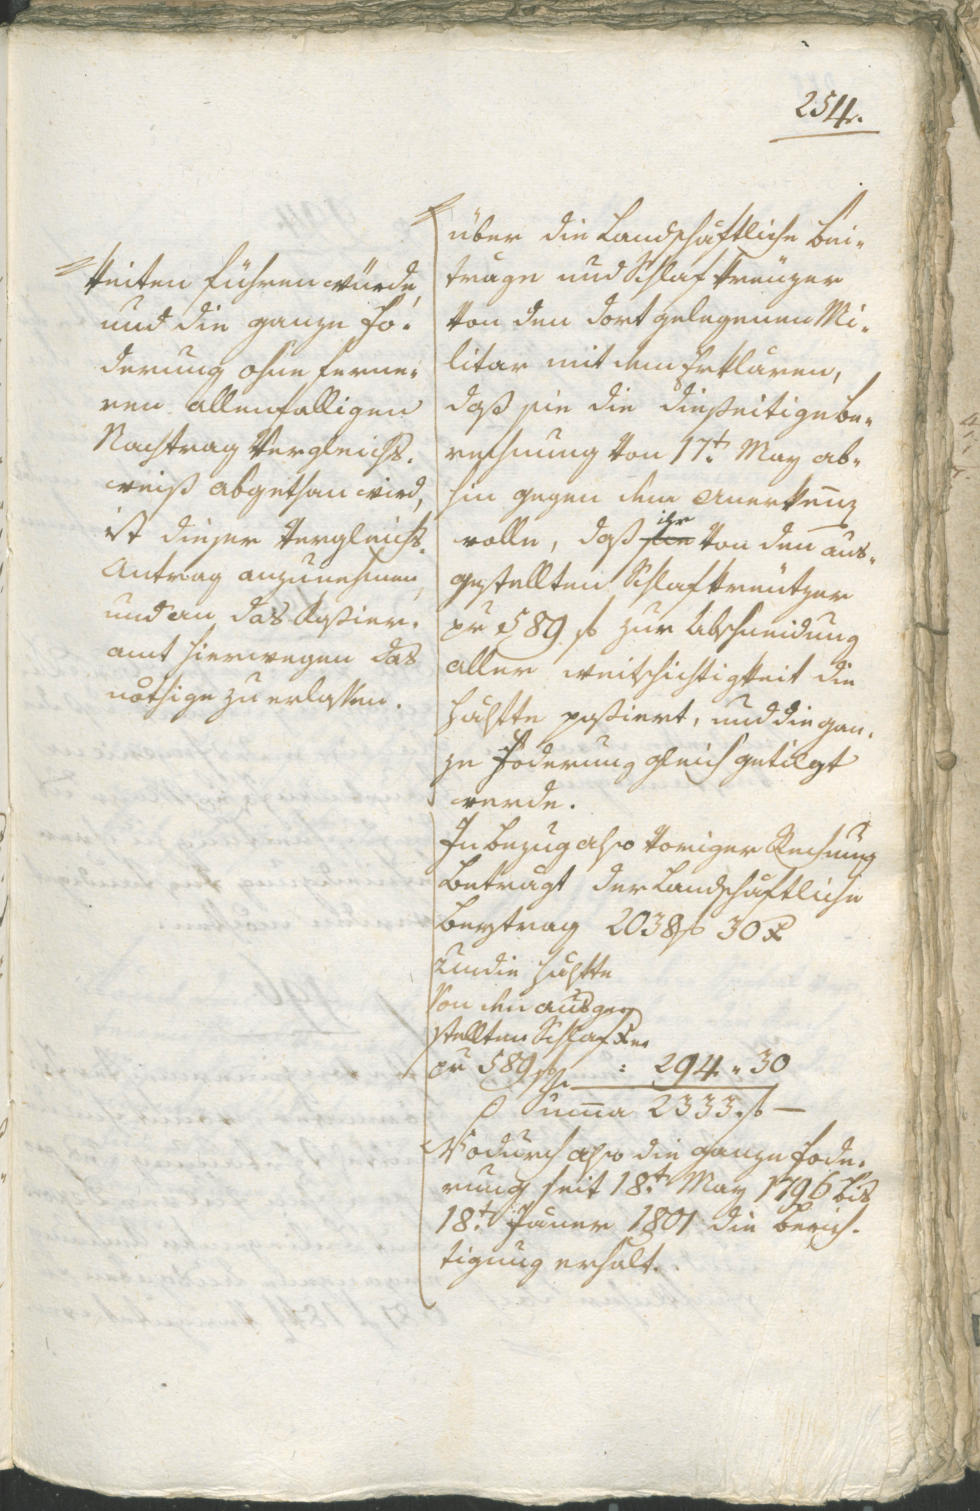 254.
keiten führen würde,
und die ganze Fo-
derung ohne ferne-
ren allenfalligen
Nachtrag Vergleichs-
weiß abgethan wird,
ist dieser Vergleichs-
Antrag anzunehmen,
und an das Kaßier-
amt hierwegen das
nöthige zu erlaßen.
über die Landschäftliche Bei-
träge und Schlafkreuzer
von den dort gelegenen Mi-
litar mit dem Erklären,
daß sie die dießeitige Be-
rechnung von 17t. May ab-
hin gegen deme anerkenne
wolle, daß sie ihr von den aus-
gestellten Schlafkreützer
pr 589 f zur Abschneidung
aller weitschichtigkeit die
Hälfte passiert, und die gan-
ze Foderung gleich getilgt
werde.
In Bezug also voriger Rechnung
betragt der Landschäftliche
Beytrag 2038 f 30 x
Und die Hälfte
Von den ausge-
stellten Schlaf xer
pr 589 f : 294 " 30
Summa 2333 f —
Wodurch also die ganze Fode-
rung seit 18t. May 1796 bis
18t. Jäner 1801 die Berich-
tigung erhält.